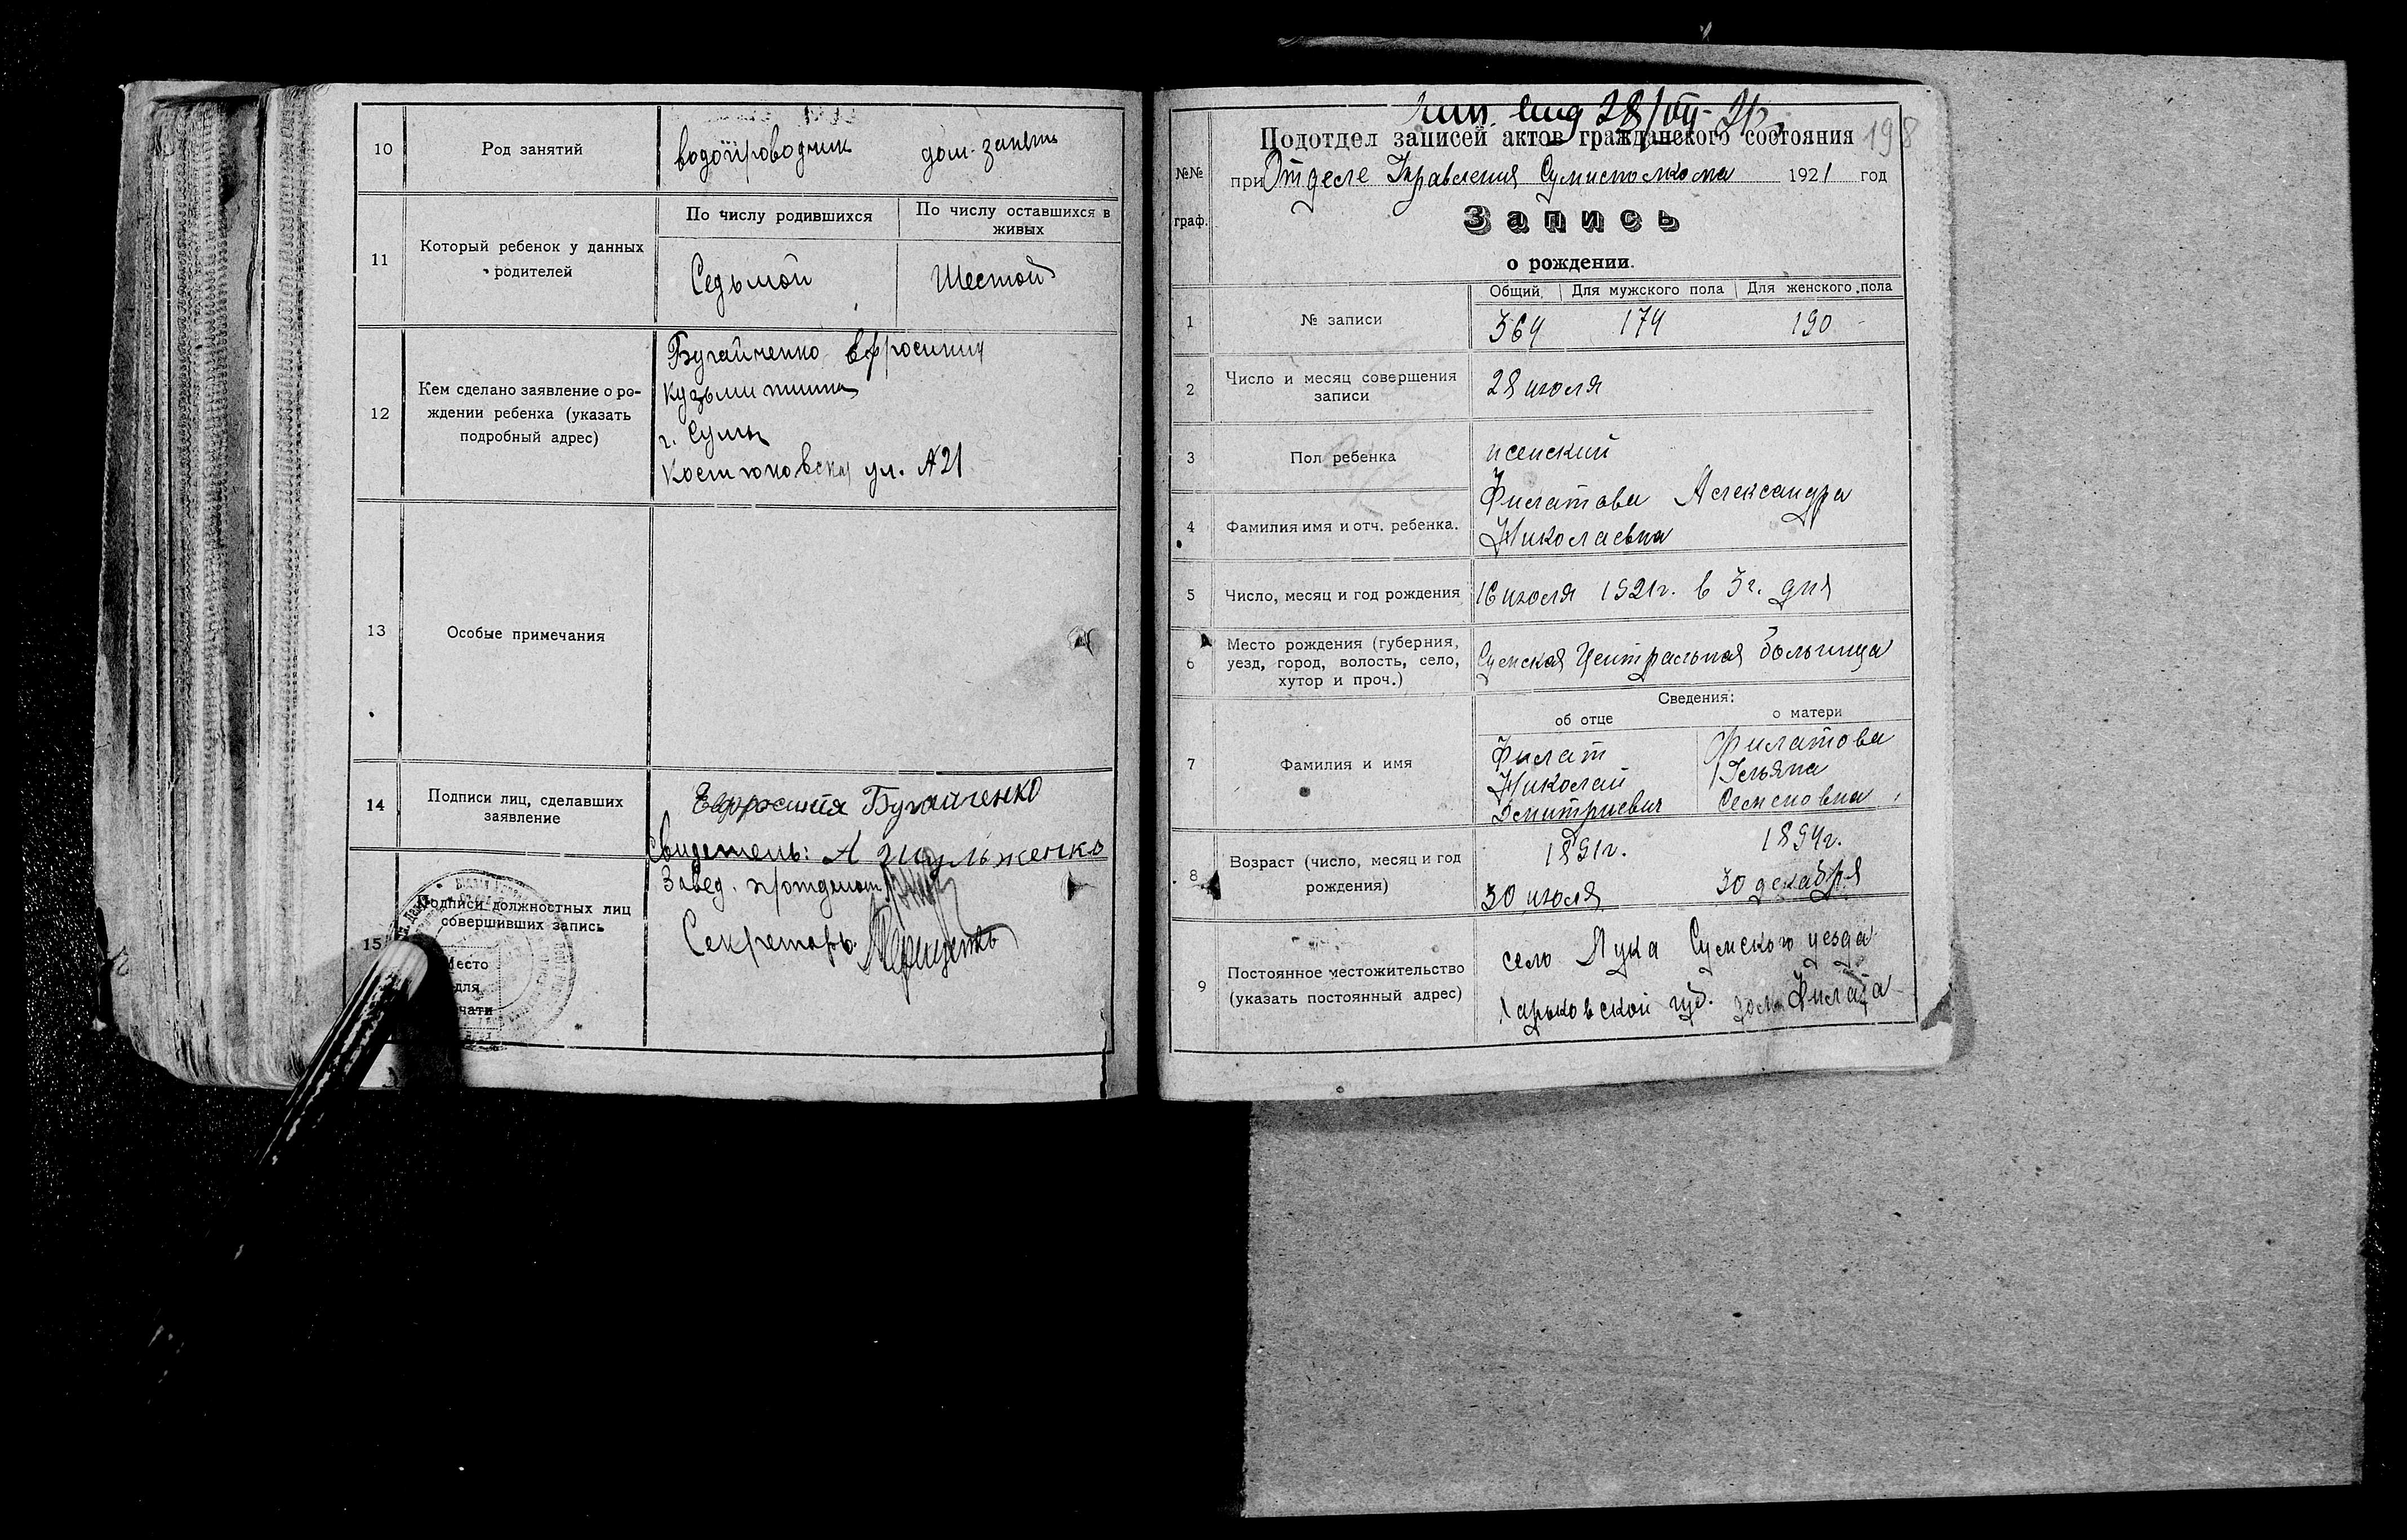 10
Род занятий
водопроводчик
дом. занят.
11
Который ребенок у данных
родителей
По числу родившихся
По числу оставшихся в
живых
Седьмой
Шестой
12
Кем сделано заявление о ро-
ждении ребенка (указать
подробный адрес)
Бугайченко Ефросиния
Кузьминична
г. Сумы
Костюковская ул. №21
13
Особые примечания
14
Подписи лиц, сделавших
заявление
Евфросиния Бугайченко
Свидетель: А
15
Подписи должностных лиц
совершивших запись
Место
для
чати
Завед. п/отделом
Секретарь
28/VII-21г.
198
№№
граф.
Подотдел записей актов гражданского состояния
при Отделе Управления Сумисполкома 1921 год
Запись
о рождении.
1
№ записи
Общий
Для мужского пола
Для женского пола
364
174
190
2
Число и месяц совершения
записи
28 июля
3
Пол ребенка
женский
4
Фамилия имя и отч. ребенка.
Филатова Александра
Николаевна
5
Число, месяц и год рождения
16 июля 1921г. в 3ч. дня
6
Место рождения (губерния,
уезд, город, волость, село,
хутор и проч.)
Сумская Центральная больница
Сведения:
об отце
о матери
7
Фамилия и имя
Филат
Николай
Дмитриевич
Филатова
Ульяна
Семеновна
8
Возраст (число, месяц и год
рождения)
1891г.
30 июля
1894г.
30 декабря
9
Постоянное местожительство
(указать постоянный адрес)
село Лука Сумского уезда
Харьковской губ. дом Филата